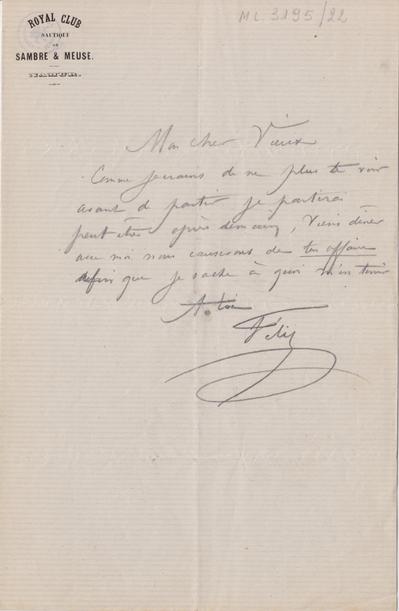 ML. 3195/22
ROYAL CLUB
NAUTIQUE
DE
SAMBRE & MEUSE.
NAMUR.
Mon cher Vieux
Comme je crains de ne plus te voir
avant de partir je partirai
peut être après demain, Viens dîner
avec moi nous causerons de ton affaire
afin que je sache à quoi m'en tenir
A toi
Féli